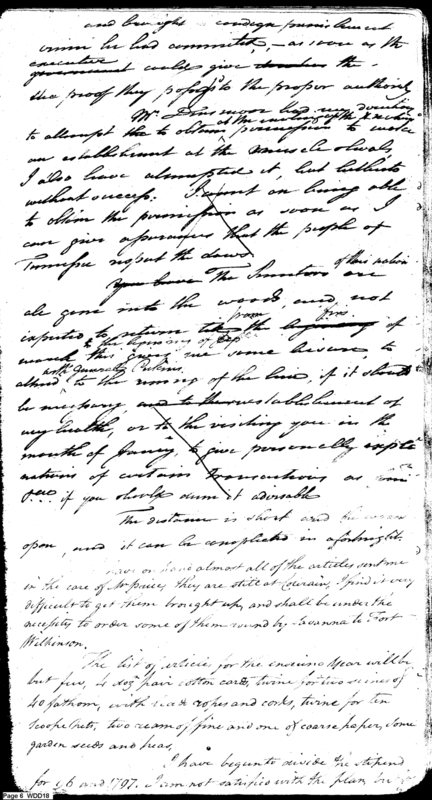 and brought condign punishment
crime he had committed, – as soon as the
executive
government could give the
the proof they possess to the proper authority
Mr. Dinsmoor had my direction
at the meeting up the
to attempt the to obtain permission to make
an establishment at the muscle shoals
I also have attempted it, but hitherto
without success. I count on being able
to obtain the permission as soon as I
can give assurances that the people of
Tennessee respect the laws
of this nation
The hunters are
all gone into the woods, and not
from
expected to return till the beginning of
to the beginning of
march this gives me some leisure, to
with General Pickens
attend to the running of the line, if it should
be necessary, and to the reestablishment of
my health, or to the visiting you in the
month of Jany, to give personally
of certain transactions as
if you should deem it adviseable
The distance is short and the
open, and it can be completed in a fortnight
have on hand almost all of the articles sent me
in the care of Mr Price, they are still at Colerain, I find is very
difficult to get them brought up, and shall be under the
necessity to order some of them round by Savanna to Fort
Wilkinson.
The list of articles for the ensuing year will be
but few, 4 doz. pair cotton cards, twine for two seines of
40 fathom, with lead ropes and corks, twine for ten
scoope nets, two ream of fine and one of coarse paper, some
garden seeds and peas,
I have begun to divide the stipend
for 96 and 1797. I am not satisfied with the plan
Page 6 WDD18